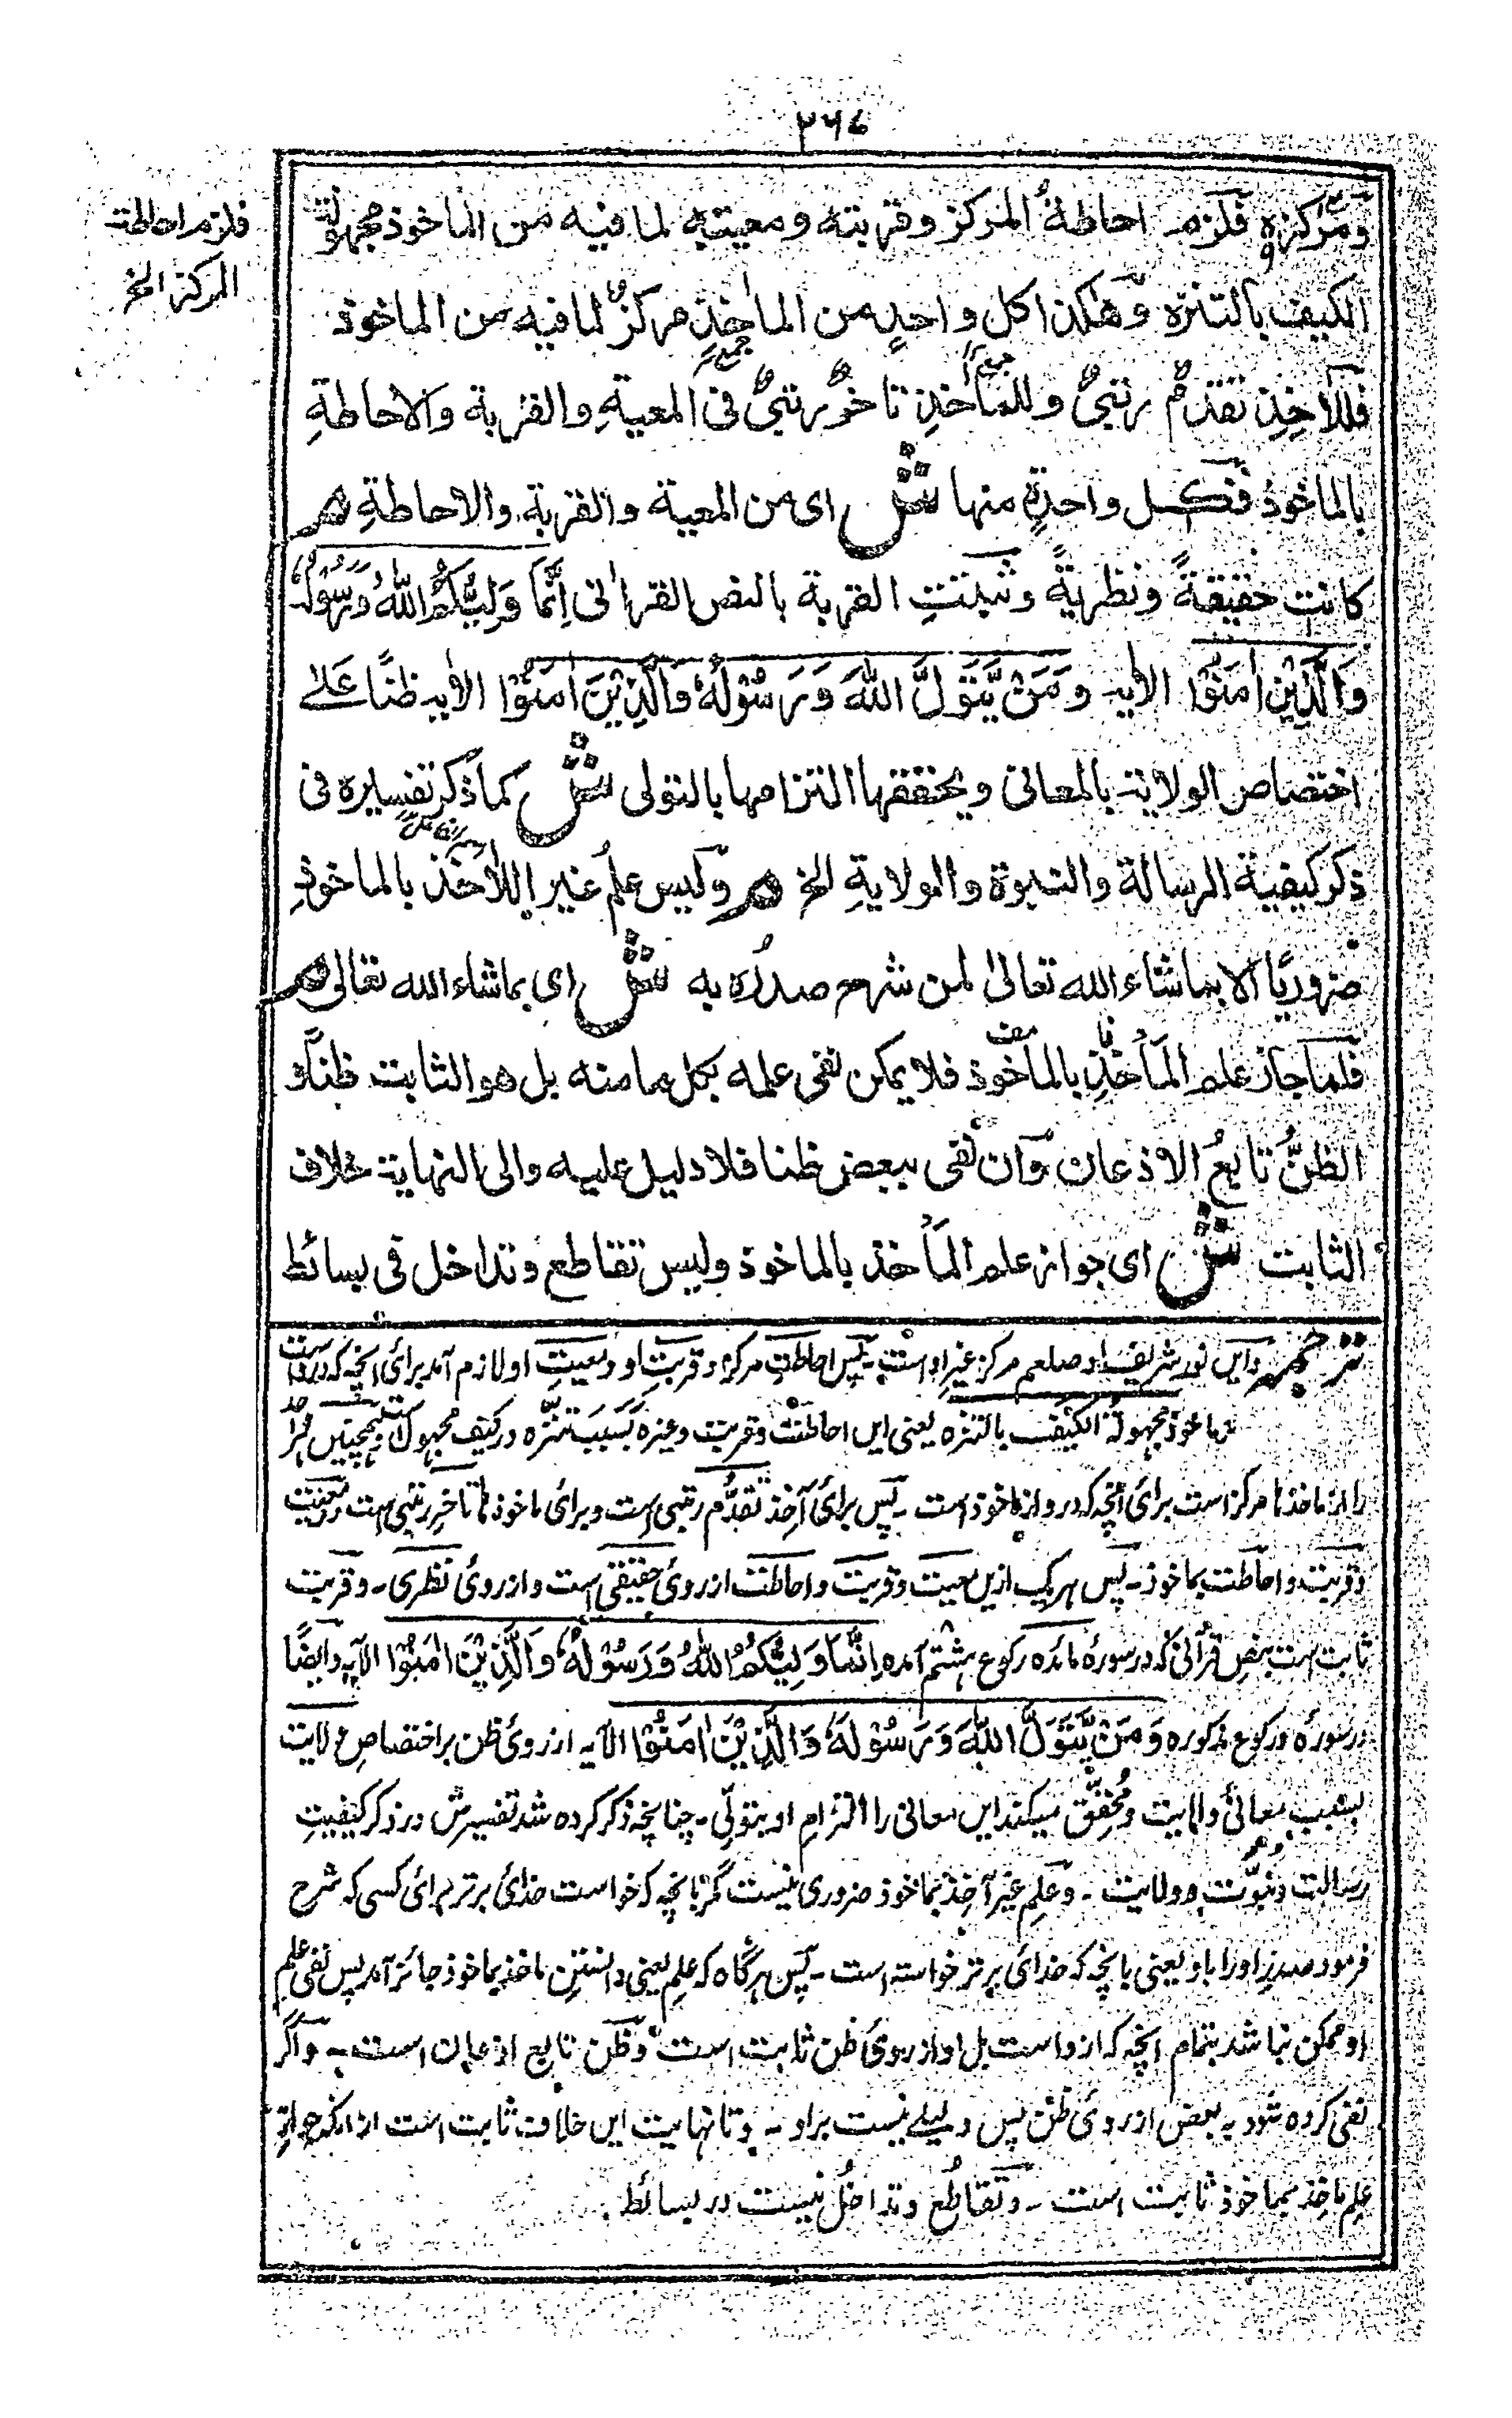 ۲۶۷
فلزم احاطة
المركز الخ
ومركزه فلزم احاطةُ المركز وقربته ومعيته لما فيه من الماخوذ مجهولة
الكيف بالتنزه وهكذا كل واحدٍ من المآخذ مركزٌ لما فيه من الماخوذ
فللآخِذِ تقدمٌ رتبیٌ وللمآخذِ تاخرٌ رتبیٌ فی المعيةِ والقربة والاحاطةِ
بالماخوذ فكل واحدةٍ منها ش ای من المعية والقربة والاحاطةِ م
كانت حقيقةً ونظريةً وثبتتِ القربة بالنص القراٰنی اِنَّمَا وَلِيُّكُمُ اللّٰهُ وَرَسُوْلُهٗ
وَالَّذِيْنَ اٰمَنُوْا الاٰية وَمَنْ يَّتَوَلَّ اللّٰهَ وَرَسُوْلَهٗ وَالَّذِيْنَ اٰمَنُوْا الاٰية ظنًّا عَلٰے
اختصاص الولاية بالمعانی ويحققها التزامها بالتولی ش كما ذُكر تفسيره فی
ذكر كيفية الرسالة والنبوة والولايةِ الخ م وليس علمُ غير الآخذ بالماخوذِ
ضروريًّا الا بما شاء الله تعالیٰ لمن شرح صدرُه به ش ای بما شاء الله تعالی م
فلما جاز علم المآخِذِ بالماخوذ فلا يمكن نفی علمه بكل ما منه بل هو الثابت ظنًّا و
الظنُّ تابعُ الاذعان وان نفی ببعض ظنا فلا دليل عليه والی النهاية خلاف
الثابت ش ای جواز علم المأخذ بالماخوذ وليس تقاطع وتداخل فی بسائط
ترجمہ واین نور شریف او صلعم مرکز غیر او است پس احاطتِ مرکز و قربتِ او و معیتِ او لازم آمد برای آنچہ کہ در و است
از ماخوذ مجهولة الکیف بالتنزّہ یعنی این احاطت و قربت و غیرہ بسبب تنزّہ در کیف مجہول و ہمچنین ہر واحد
را از ماخذہا مرکز است برای آنچہ کہ در و از ماخوذ است ۔ پس برای آخِذ تقدُّم رتبی است و برای ماخذہا تاخرِ رتبی است در معیت
و قربت و احاطت بماخوذ ۔ پس ہر یک ازین معیت و قربت و احاطت از روی حقیقی است و از روی نظری ۔ و قربت
ثابت است بنصِ قرآنی کہ در سورۂ مائدہ رکوع ہشتم آمدہ اِنَّمَا وَلِيُّكُمُ اللّٰهُ وَرَسُوْلُهٗ وَالَّذِيْنَ اٰمَنُوْا الآیہ و ایضًا
در سورہ و رکوع مذکورہ وَمَنْ يَّتَوَلَّ اللّٰهَ وَرَسُوْلَهٗ وَالَّذِيْنَ اٰمَنُوْا الآیہ از روی ظن بر اختصاصِ ولایت
بسبب معانی ولایت و مُحقِّق میکند این معانی را التزامِ او بتولّی ۔ چنانچہ ذکر کردہ شد تفسیرش در ذکر کیفیتِ
رسالت و نبوّت و ولایت ۔ و علمِ غیر آخِذ بماخوذ ضروری نیست مگر بآنچہ کہ خواست خدای برتر برای کسی کہ شرح
فرمود صدرِ او را باو یعنی بآنچہ کہ خدای برتر خواستہ است ۔ پس ہرگاہ کہ علم یعنی دانستنِ ماخذ بماخوذ جائز آمد پس نفی علمِ
او ممکن نباشد بتمام آنچہ کہ ازو است بل او از روی ظن ثابت است و ظن تابع اذعان است ۔ و اگر
نفی کردہ شود بہ بعض از روی ظن پس دلیلے نیست بر او ۔ و تا نہایت این خلافِ ثابت است از آنکہ جوازِ
علم ماخِذ بماخوذ ثابت است ۔ و تقاطُع و تداخُل نیست در بسائط ۔